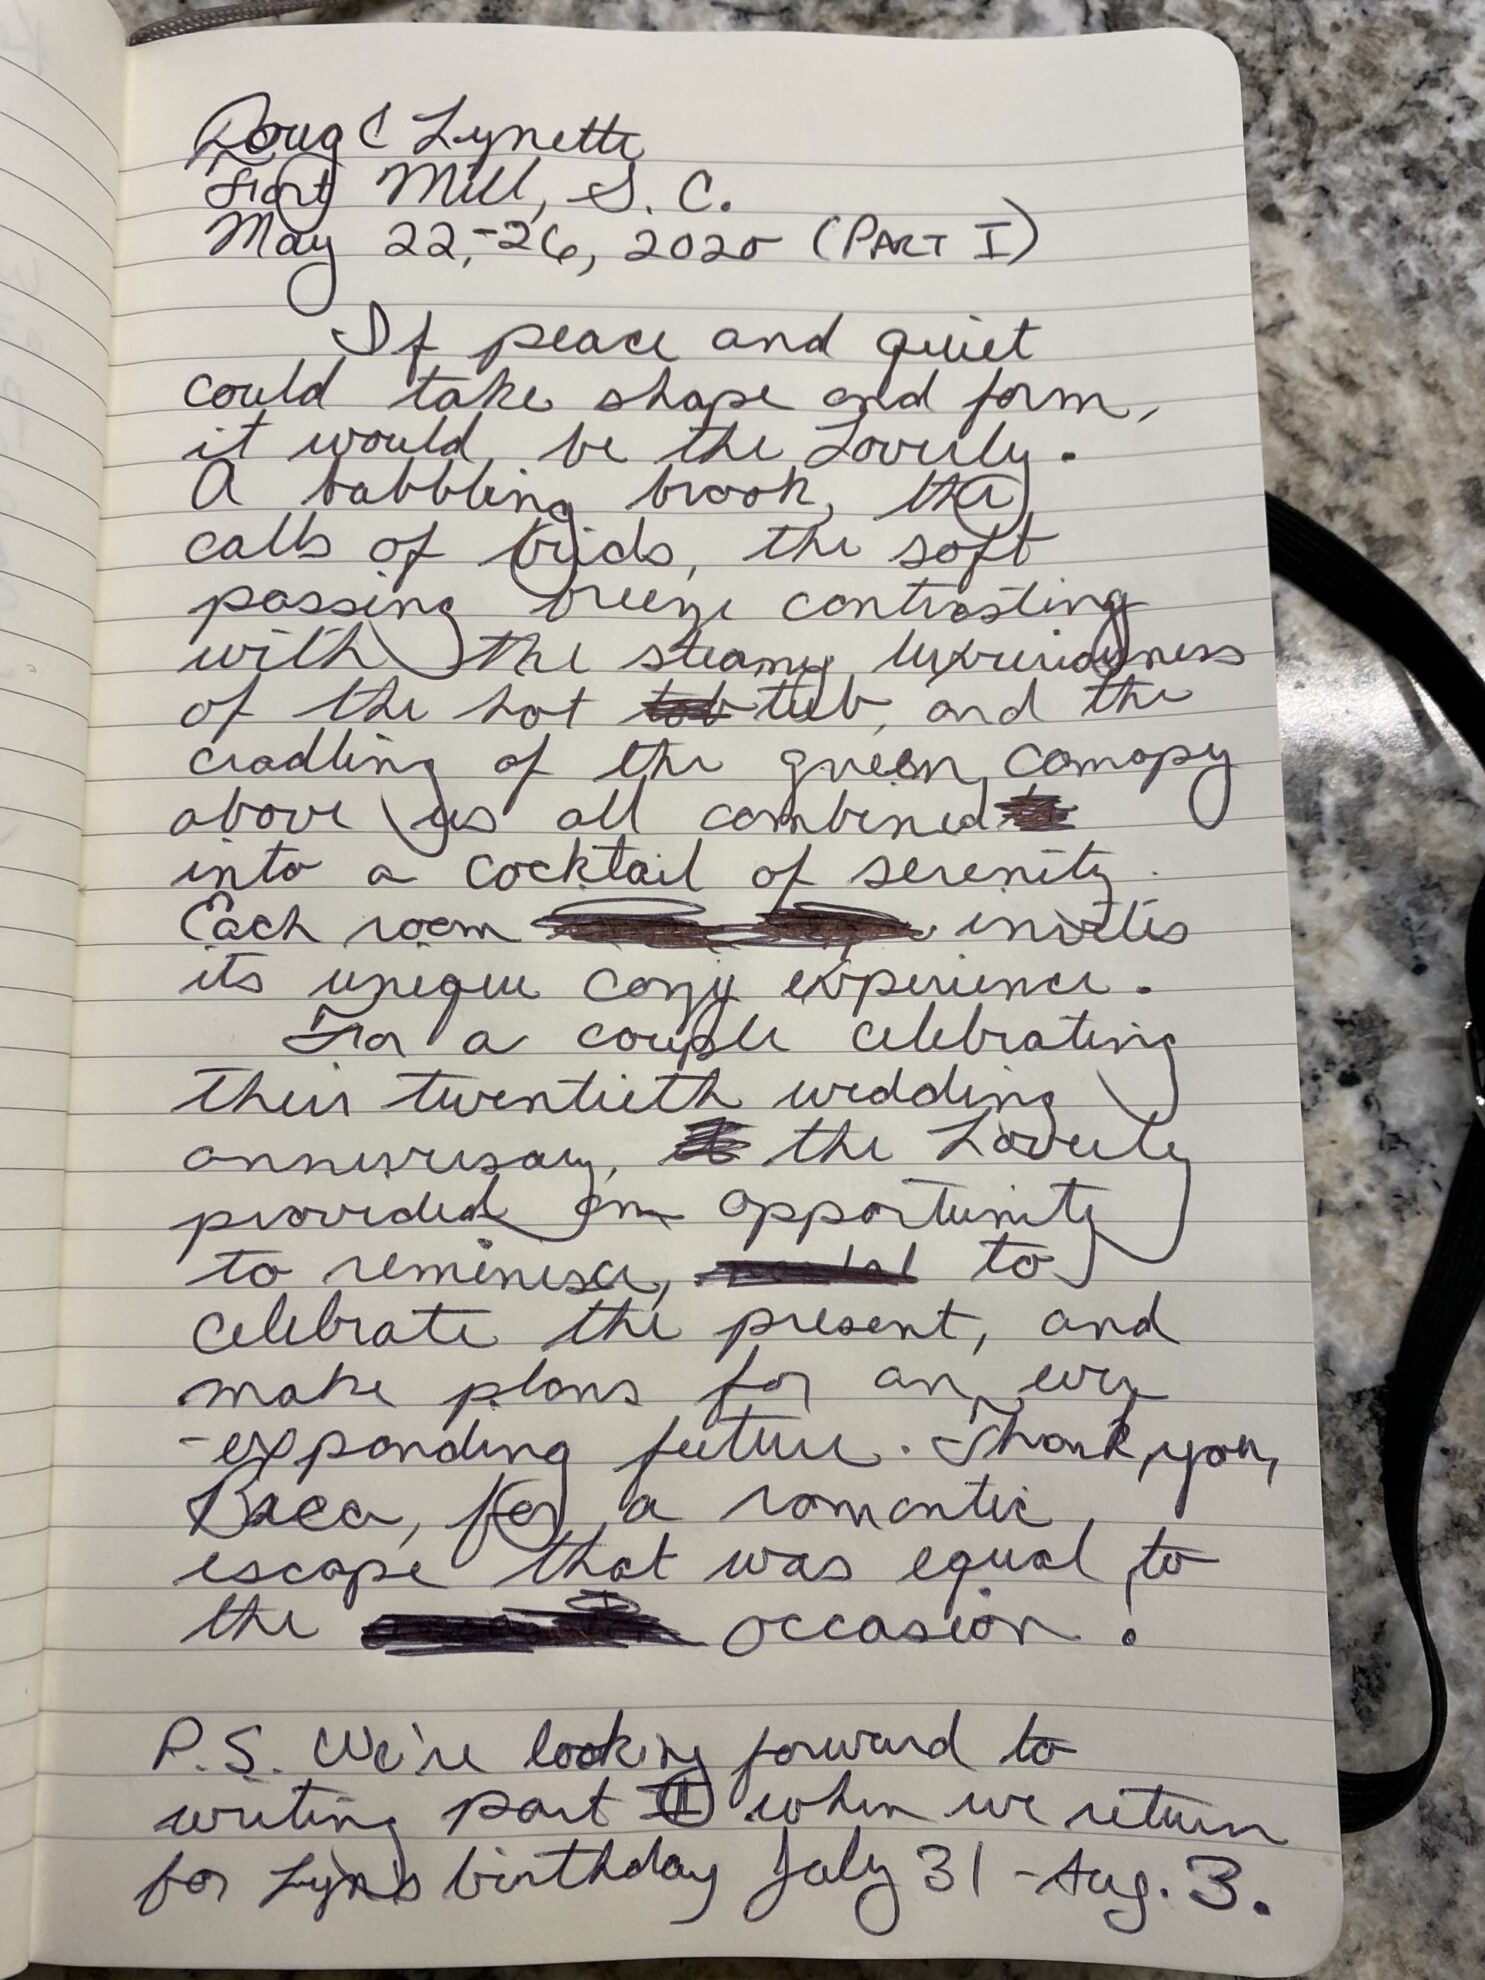 Doug & Lynette
Fort Mill, S. C.
May 22,-26, 2020 (PART I)
If peace and quiet
could take shape and form,
it would be the Loverly.
A babbling brook, the
calls of birds, the soft
passing breeze contrasting
with the steamy luxuriousness
of the hot tub, and the
cradling of the green canopy
above us all combined
into a cocktail of serenity.
Each room invites
its unique cozy experience.
For a couple celebrating
their twentieth wedding
anniversary, the Loverly
provided an opportunity
to reminisce, to
celebrate the present, and
make plans for an ever
-expanding future. Thank you,
for a romantic
escape that was equal to
the occasion!
P.S. We're looking forward to
writing part II when we return
for Lyn's birthday July 31 - Aug. 3.